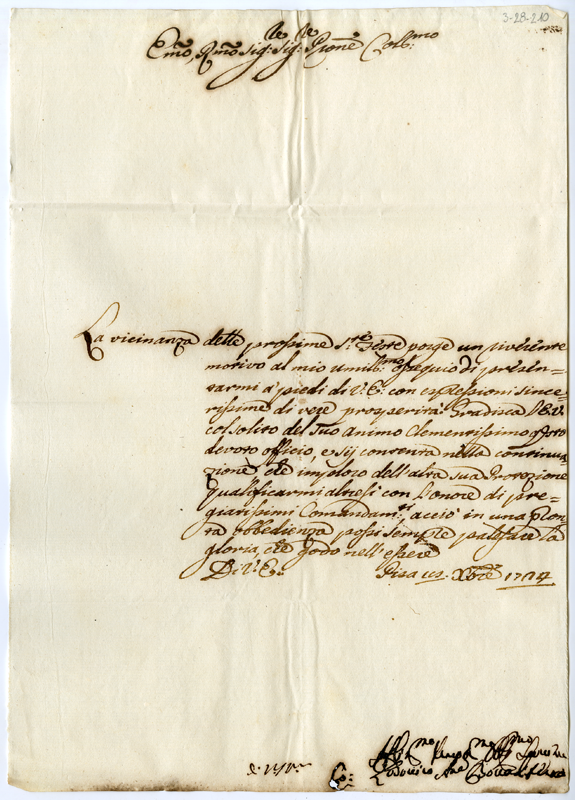 3-28-210
Emo, Rmo Sig:re Sig:re Prone Colmo
La vicinanza delle prossime S:te Feste porge un riverente
motivo al mio umilmo ossequio di presen=
tarmi a' piedi di V: E: con espressioni since=
rissime di vere prosperità. Gradisca l'E. V.
col solito del suo animo Clementissimo questo
devoto officio, e sij contenta nella continua=
zione che imploro dell'alta sua Protezione
qualificarmi altresì con l'onore di pre=
giatissimi Comandam:ti, acciò in una pron=
ta obbedienza possi sempre palesare la
gloria, che godo nell'essere
Di V: E:
Pisa Xbre 1714